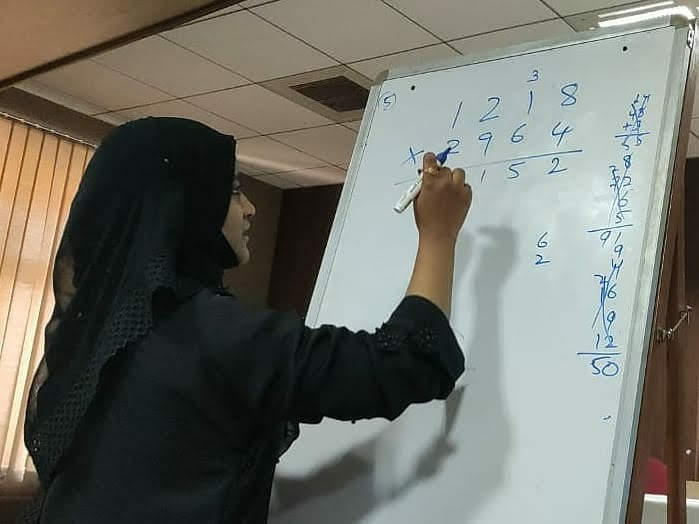 (5)
3
1 2 1 8
× 2 9 6 4
1 5 2
6
2
9 19
6
9
12
50